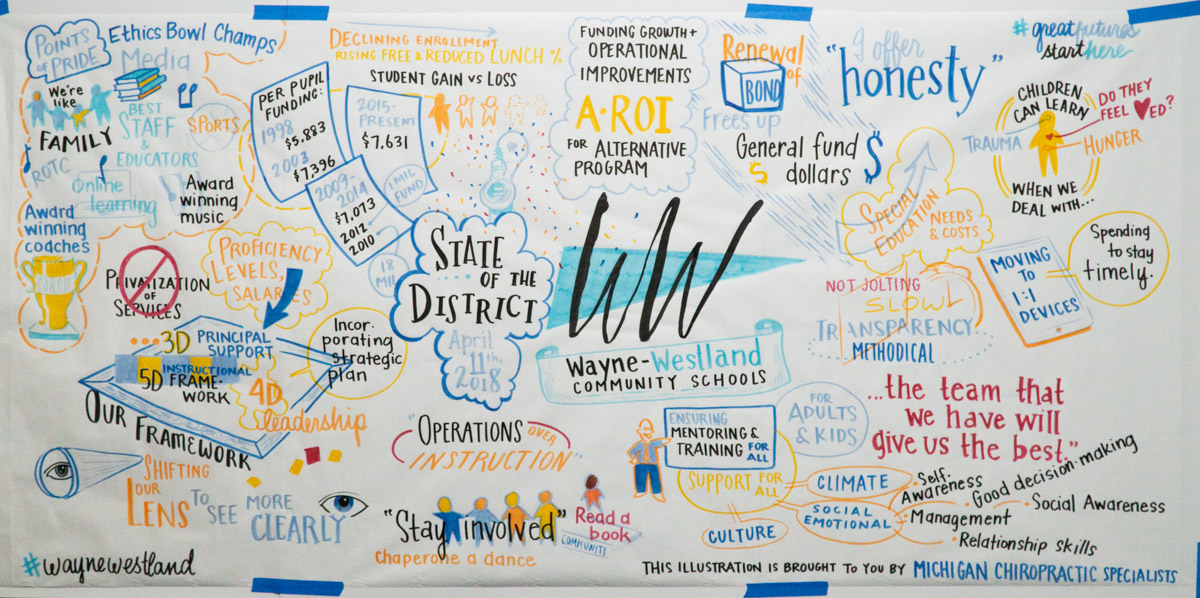 POINTS
of PRIDE
Ethics Bowl Champs
Media
We're
like
FAMILY
BEST
STAFF
&
EDUCATORS
SPORTS
ROTC
Online
learning
Award
winning
music
Award
winning
coaches
DECLINING ENROLLMENT
RISING FREE & REDUCED LUNCH %
STUDENT GAIN vs LOSS
PER PUPIL
FUNDING:
1998
$5,883
2003
$7,396
2015-
PRESENT
$7,631
2009-
2014
$7,073
2012
2010
1 MIL
FUND
18
MIL
FUNDING GROWTH +
OPERATIONAL
IMPROVEMENTS
A-ROI
FOR ALTERNATIVE
PROGRAM
Renewal
of
BOND
Frees up
General fund $
$ dollars
"I offer
honesty"
#greatfutures
starthere
CHILDREN
CAN LEARN
DO THEY
FEEL ♥ED?
TRAUMA
HUNGER
WHEN WE
DEAL WITH...
SPECIAL
EDUCATION
NEEDS
& COSTS
MOVING
TO
1:1
DEVICES
Spending
to stay
timely.
NOT JOLTING
SLOW
TRANSPARENCY
METHODICAL
STATE
OF THE
DISTRICT
April
11th,
2018
WW
Wayne-Westland
COMMUNITY SCHOOLS
PRIVATIZATION
OF
SERVICES
PROFICIENCY
LEVELS,
SALARIES
3D PRINCIPAL
SUPPORT
INSTRUCTIONAL
5D FRAME-
WORK
4D
leadership
Incor-
porating
strategic
plan
OUR FRAMEWORK
SHIFTING
OUR
LENS TO
SEE MORE
CLEARLY
#waynewestland
"OPERATIONS OVER
INSTRUCTION"
"Stay involved"
chaperone a dance
COMMUNITY
Read a
book
ENSURING
MENTORING &
TRAINING FOR
ALL
FOR
ADULTS
& KIDS
SUPPORT FOR
ALL
CLIMATE
SOCIAL
EMOTIONAL
CULTURE
...the team that
we have will
give us the best."
Self-
Awareness
Good decision-making
Social Awareness
Management
Relationship skills
THIS ILLUSTRATION IS BROUGHT TO YOU BY MICHIGAN CHIROPRACTIC SPECIALISTS